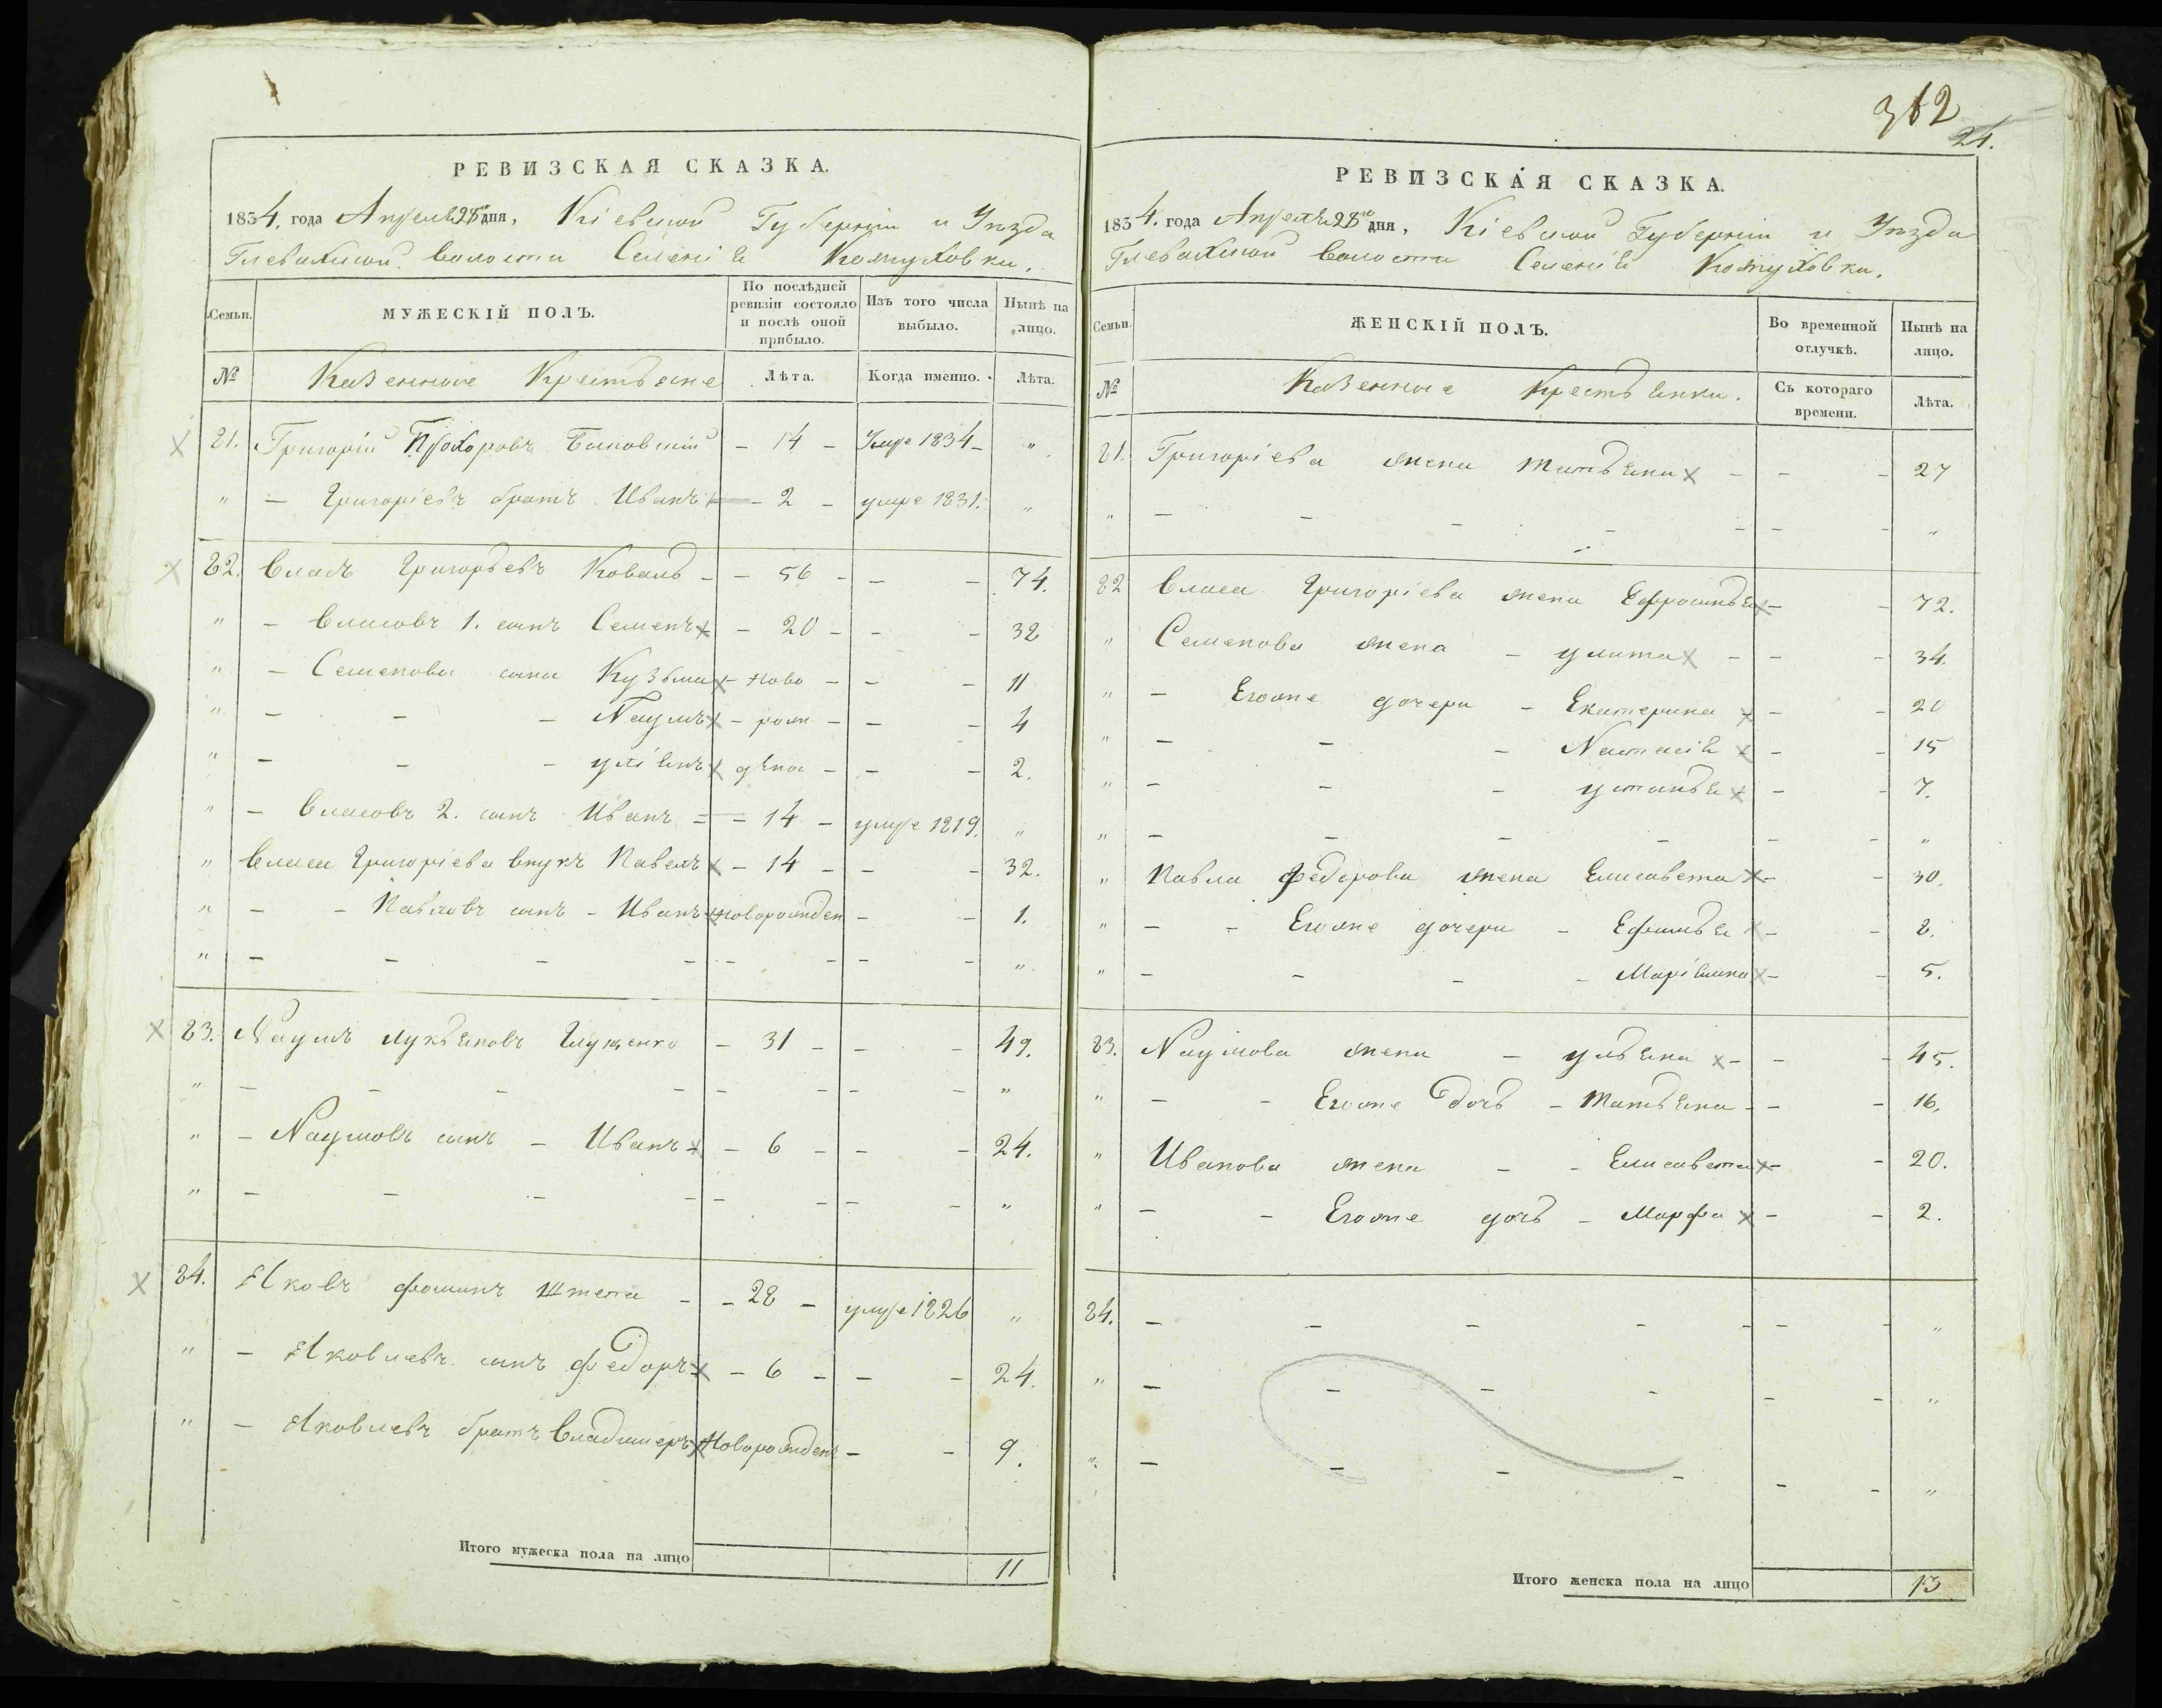 РЕВИЗСКАЯ СКАЗКА.
1834. года Апреля 28го дня, Кіевской Губерніи и Уѣзда
Глевахской волости Селенія Кожуховки.
Семьи.
МУЖЕСКІЙ ПОЛЪ.
По послѣдней ревизіи состояло и послѣ оной прибыло.
Изъ того числа выбыло.
Нынѣ на лицо.
№ Казенные Крестьяне Лѣта. Когда именно. Лѣта.
81. Григорій Прохоровъ - 14 - Умре 1834 - "
" - Григоріевъ братъ Иванъ - 2 - умре 1831. "
82. Власъ Григорьевъ Коваль - - 56 - - - 74.
" - Власовъ 1. сынъ Семенъ - 20 - - - 38
" - Семенова сына Кузьма - Ново - - - 11
" - - - Наумъ - рож - - - 4
" - - - Уліянъ дѣны - - - 2.
" - Власовъ 2. сынъ Иванъ - - 14 - умре 1819. "
" Власа Григоріева внукъ Павелъ - 14 - - - 32.
" - - Павловъ сынъ - Иванъ Новорожден - - 1.
" - - - - - - - - "
83. Наумъ Лукьяновъ Глущенко - 31 - - - 49.
" - - - - - - - - "
" - Наумовъ сынъ - Иванъ - 6 - - - 24.
" - - - - - - - - "
84. Яковъ Фоминъ Штепа - - 28 - умре 1826 "
" - Яковлевъ сынъ Федоръ - 6 - - - 24.
" - Яковлевъ братъ Владимеръ Новорожденъ - - 9.
Итого мужеска пола на лицо 11
362
24.
РЕВИЗСКАЯ СКАЗКА.
1834. года Апреля 28го дня, Кіевской Губерніи и Уѣзда
Глевахской волости Селенія Кожуховки.
Семьи.
ЖЕНСКІЙ ПОЛЪ.
Во временной отлучкѣ.
Нынѣ на лицо.
№ Казенные Крестьянки. Съ котораго времени. Лѣта.
81. Григоріева жена Татьяна - - - 27
" - - - - - - - "
82 Власа Григоріева жена Ефросинья - - 72.
" Семенова жена - Улита - - - 34.
" - Егоже дочери - Екатерина - - 20
" - - - Настасія - - 15
" - - - Устинья - - 7.
" - - - - - - "
" Павла Федорова жена Елисавета - - 30.
" - - Егоже дочери - Ефимья - - 8.
" - - - - Маріянна - - 5.
83. Наумова жена - Ульяна - - - 45.
" - - Егоже дочь - Татьяна - - - 16.
" Иванова жена - - Елисавета - - 20.
" - - Егоже дочь - Марфа - - 2.
84. - - - - - - - "
" - - - - - - "
" - - - - - - "
Итого женска пола на лицо 13